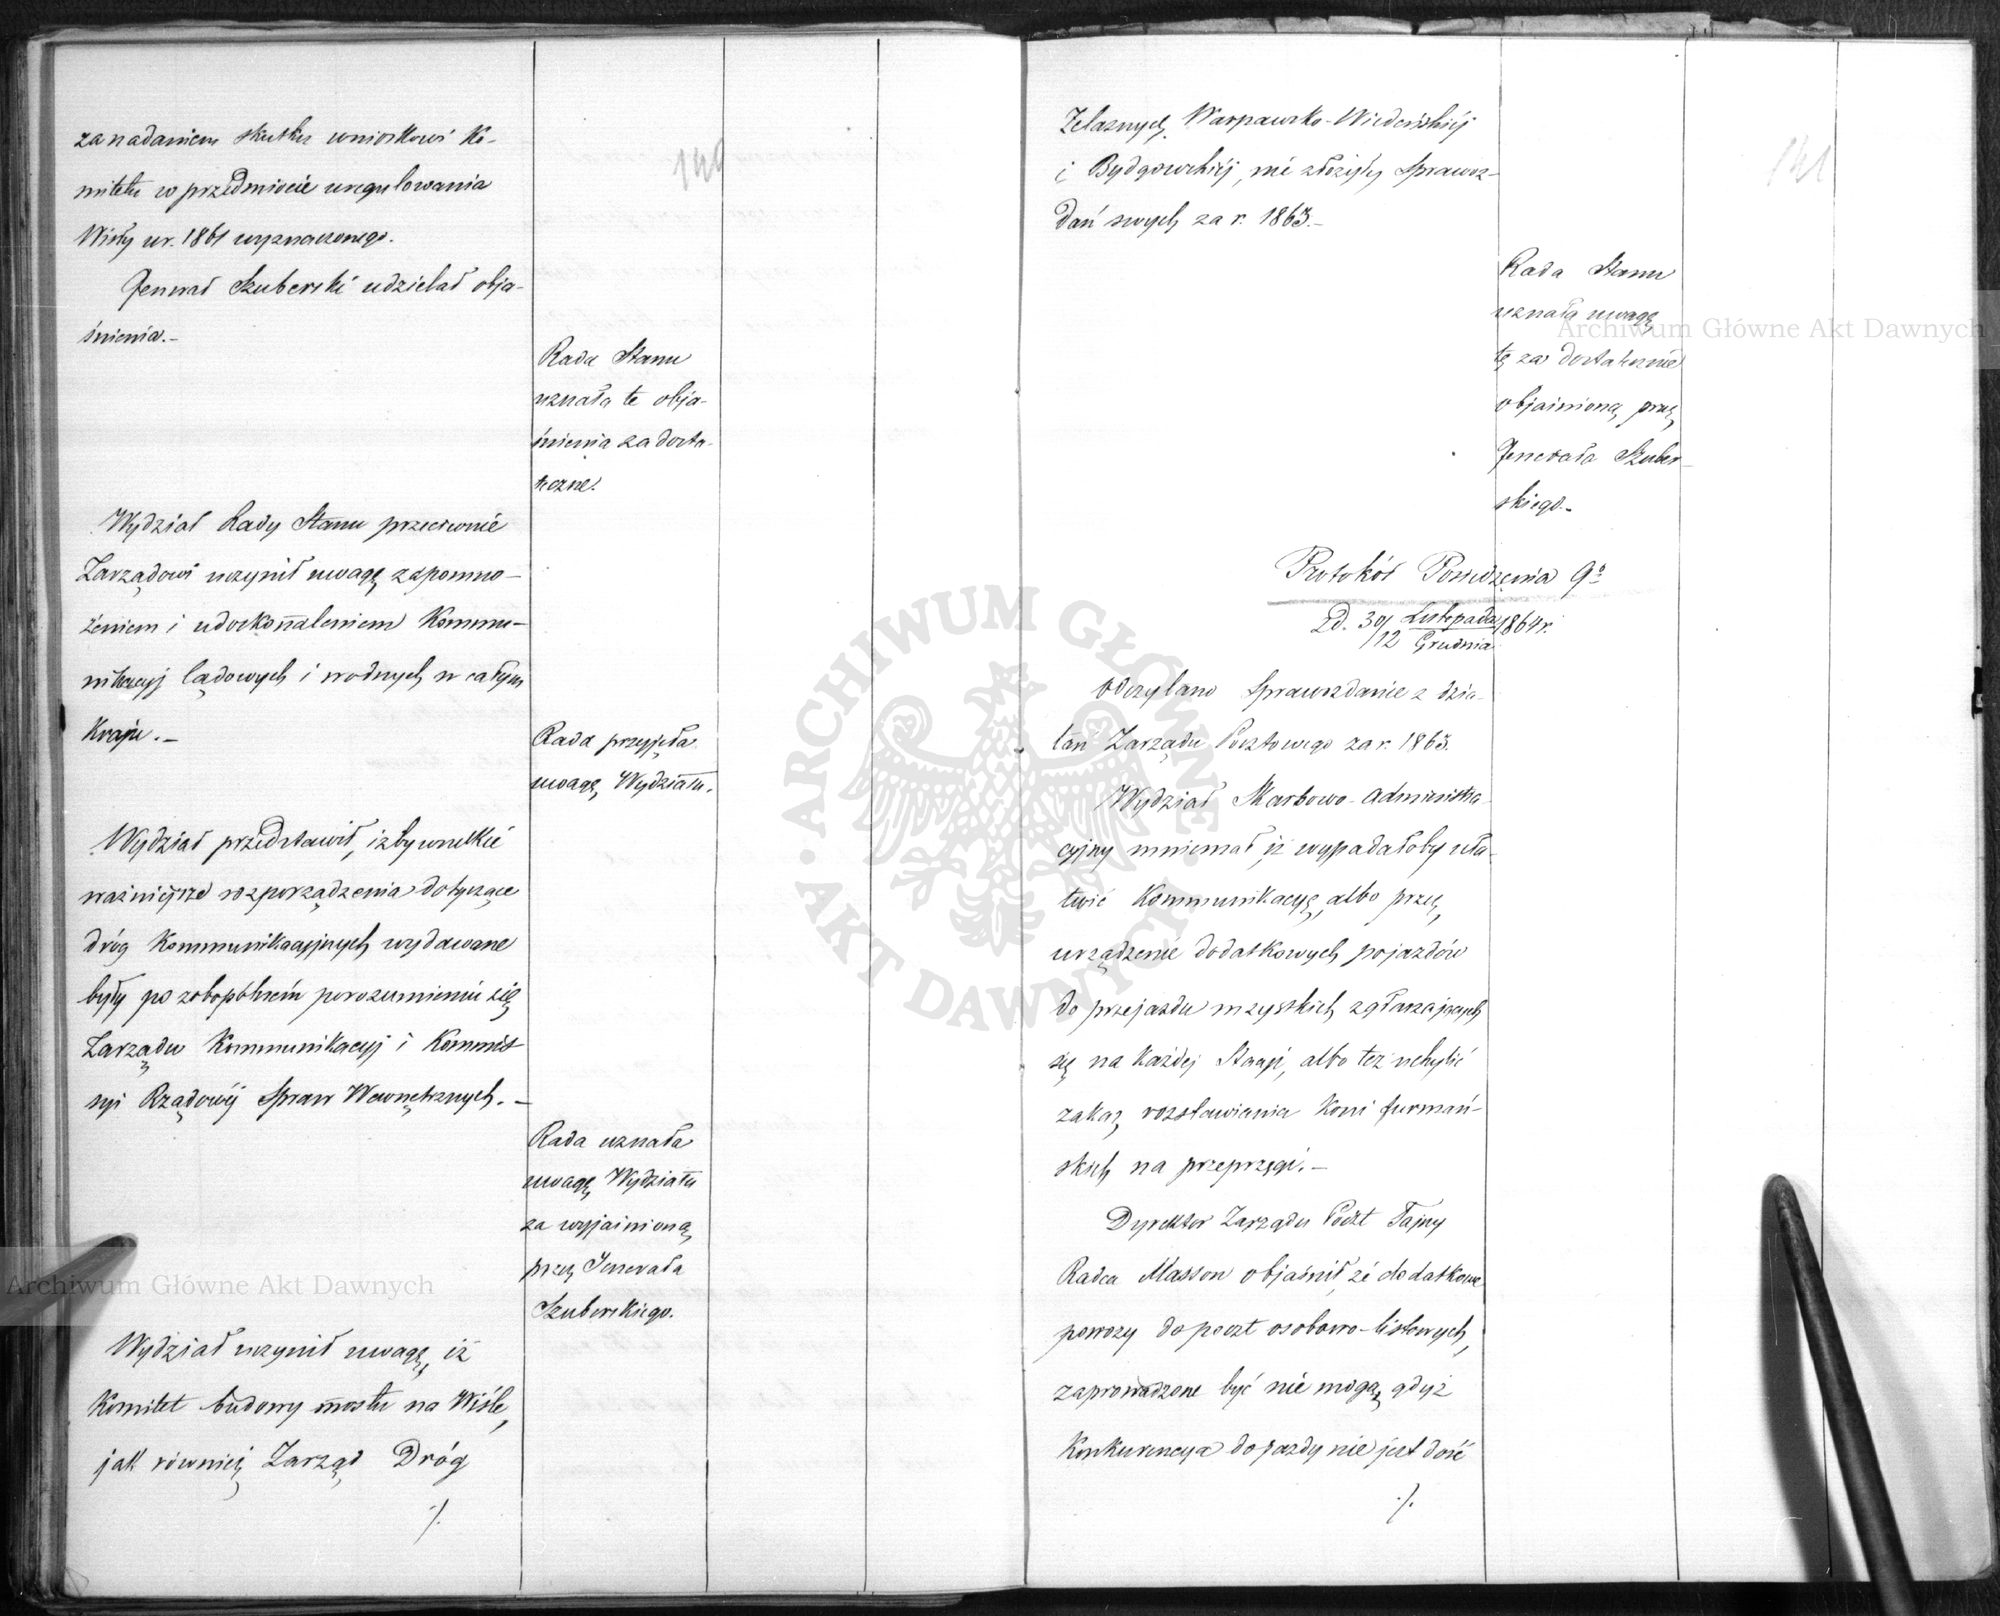 140
za nadaniem skutku wnioskowi Ko-
mitetu w przedmiocie uregulowania
Wisły w r. 1861 wyznaczonego.
Jenerał Szuberski udzielał obja-
śnienia.-
Rada Stanu
uznała te obja-
śnienia za dosta-
teczne.
Wydział Rady Stanu przeciwnie
Zarządowi uczynił uwagę, za pomno-
żeniem i udoskonaleniem Kommu-
nikacyj lądowych i wodnych w całym
Kraju.-
Rada przyjęła
uwagę Wydziału.
Wydział przedstawił, iżby wszelkie
ważniejsze rozporządzenia dotyczące
dróg Kommunikacyjnych wydawane
były po zobopólnem porozumieniu się
Zarządu Kommunikacyj i Kommis-
syi Rządowéj Spraw Wewnętrznych.-
Rada uznała
uwagę Wydziału
za wyjaśnioną
przez Jenerała
Szuberskiego.
Wydział uczynił uwagę, iż
Komitet budowy mostu na Wiśle,
jak również Zarząd Dróg
./.
141
Żelaznych Warszawsko-Wiedeńskiéj
i Bydgowskiéj, nie złożyły Sprawoz-
dań swych za r. 1863.-
Rada Stanu
uznała uwagę
tę za dostatecznie
objaśnioną przez
Jenerała Szuber-
skiego.-
Protokół Posiedzenia 9º
Zd. 30/12 Listopada/Grudnia 1864 r.
Odczytano Sprawozdanie z dzia-
łań Zarządu Pocztowego za r. 1863.
Wydział Skarbowo-Administra-
cyjny mniemał, iż wypadałoby uła-
twić Kommunikacyę, albo przez
urządzenie dodatkowych pojazdów
do przejazdu wszystkich zgłaszających
się na każdej Stacyi, albo też uchylić
zakaz rozstawiania Koni furmań-
skich na przeprzęgi.-
Dyrektor Zarządu Poczt Tajny
Radca Masson objaśnił, że dodatkowe
powozy do poczt osobowo-listowych,
zaprowadzone być nie mogą, gdyż
Konkurencya do jazdy nie jest dość
./.
ARCHIWUM GŁÓWNE AKT DAWNYCH
Archiwum Główne Akt Dawnych
Archiwum Główne Akt Dawnych